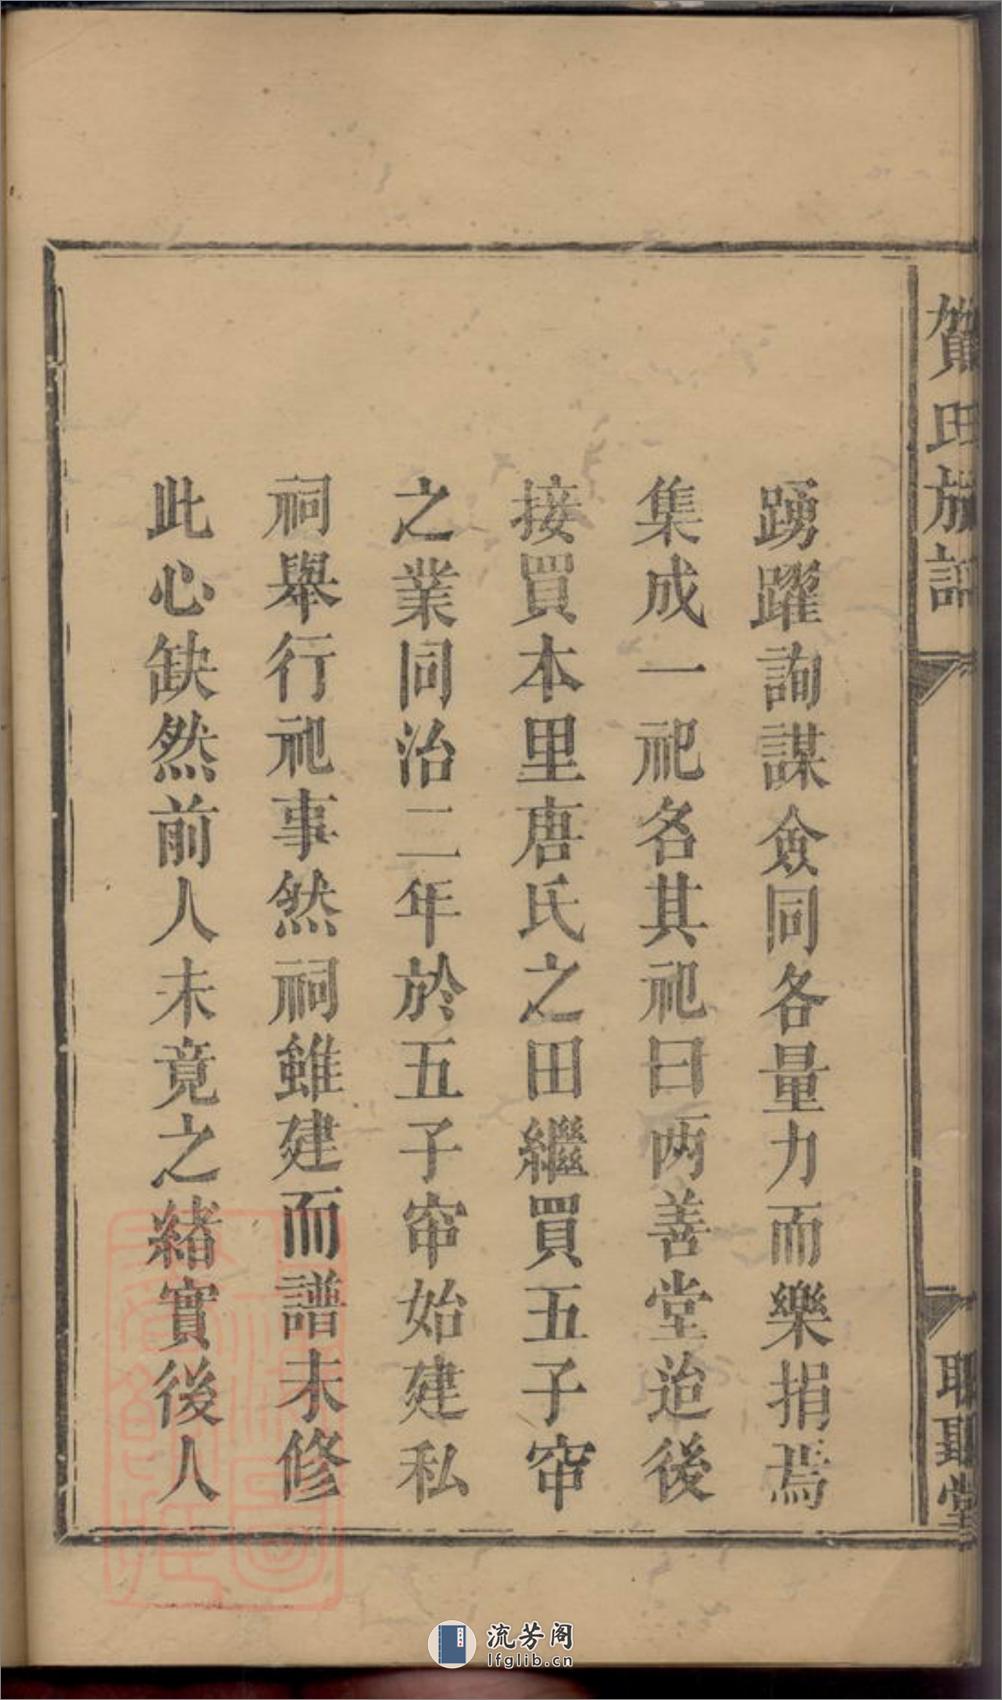 賀氏族譜
踴躍詢謀僉同各量力而樂捐焉
集成一祀名其祀曰両善堂迨後
接買本里唐氏之田繼買五子帘
之業同治二年於五子帘始建私
祠舉行祀事然祠雖建而譜未修
此心缺然前人未竟之緒實後人
堂
流芳阁
lfglib.cn